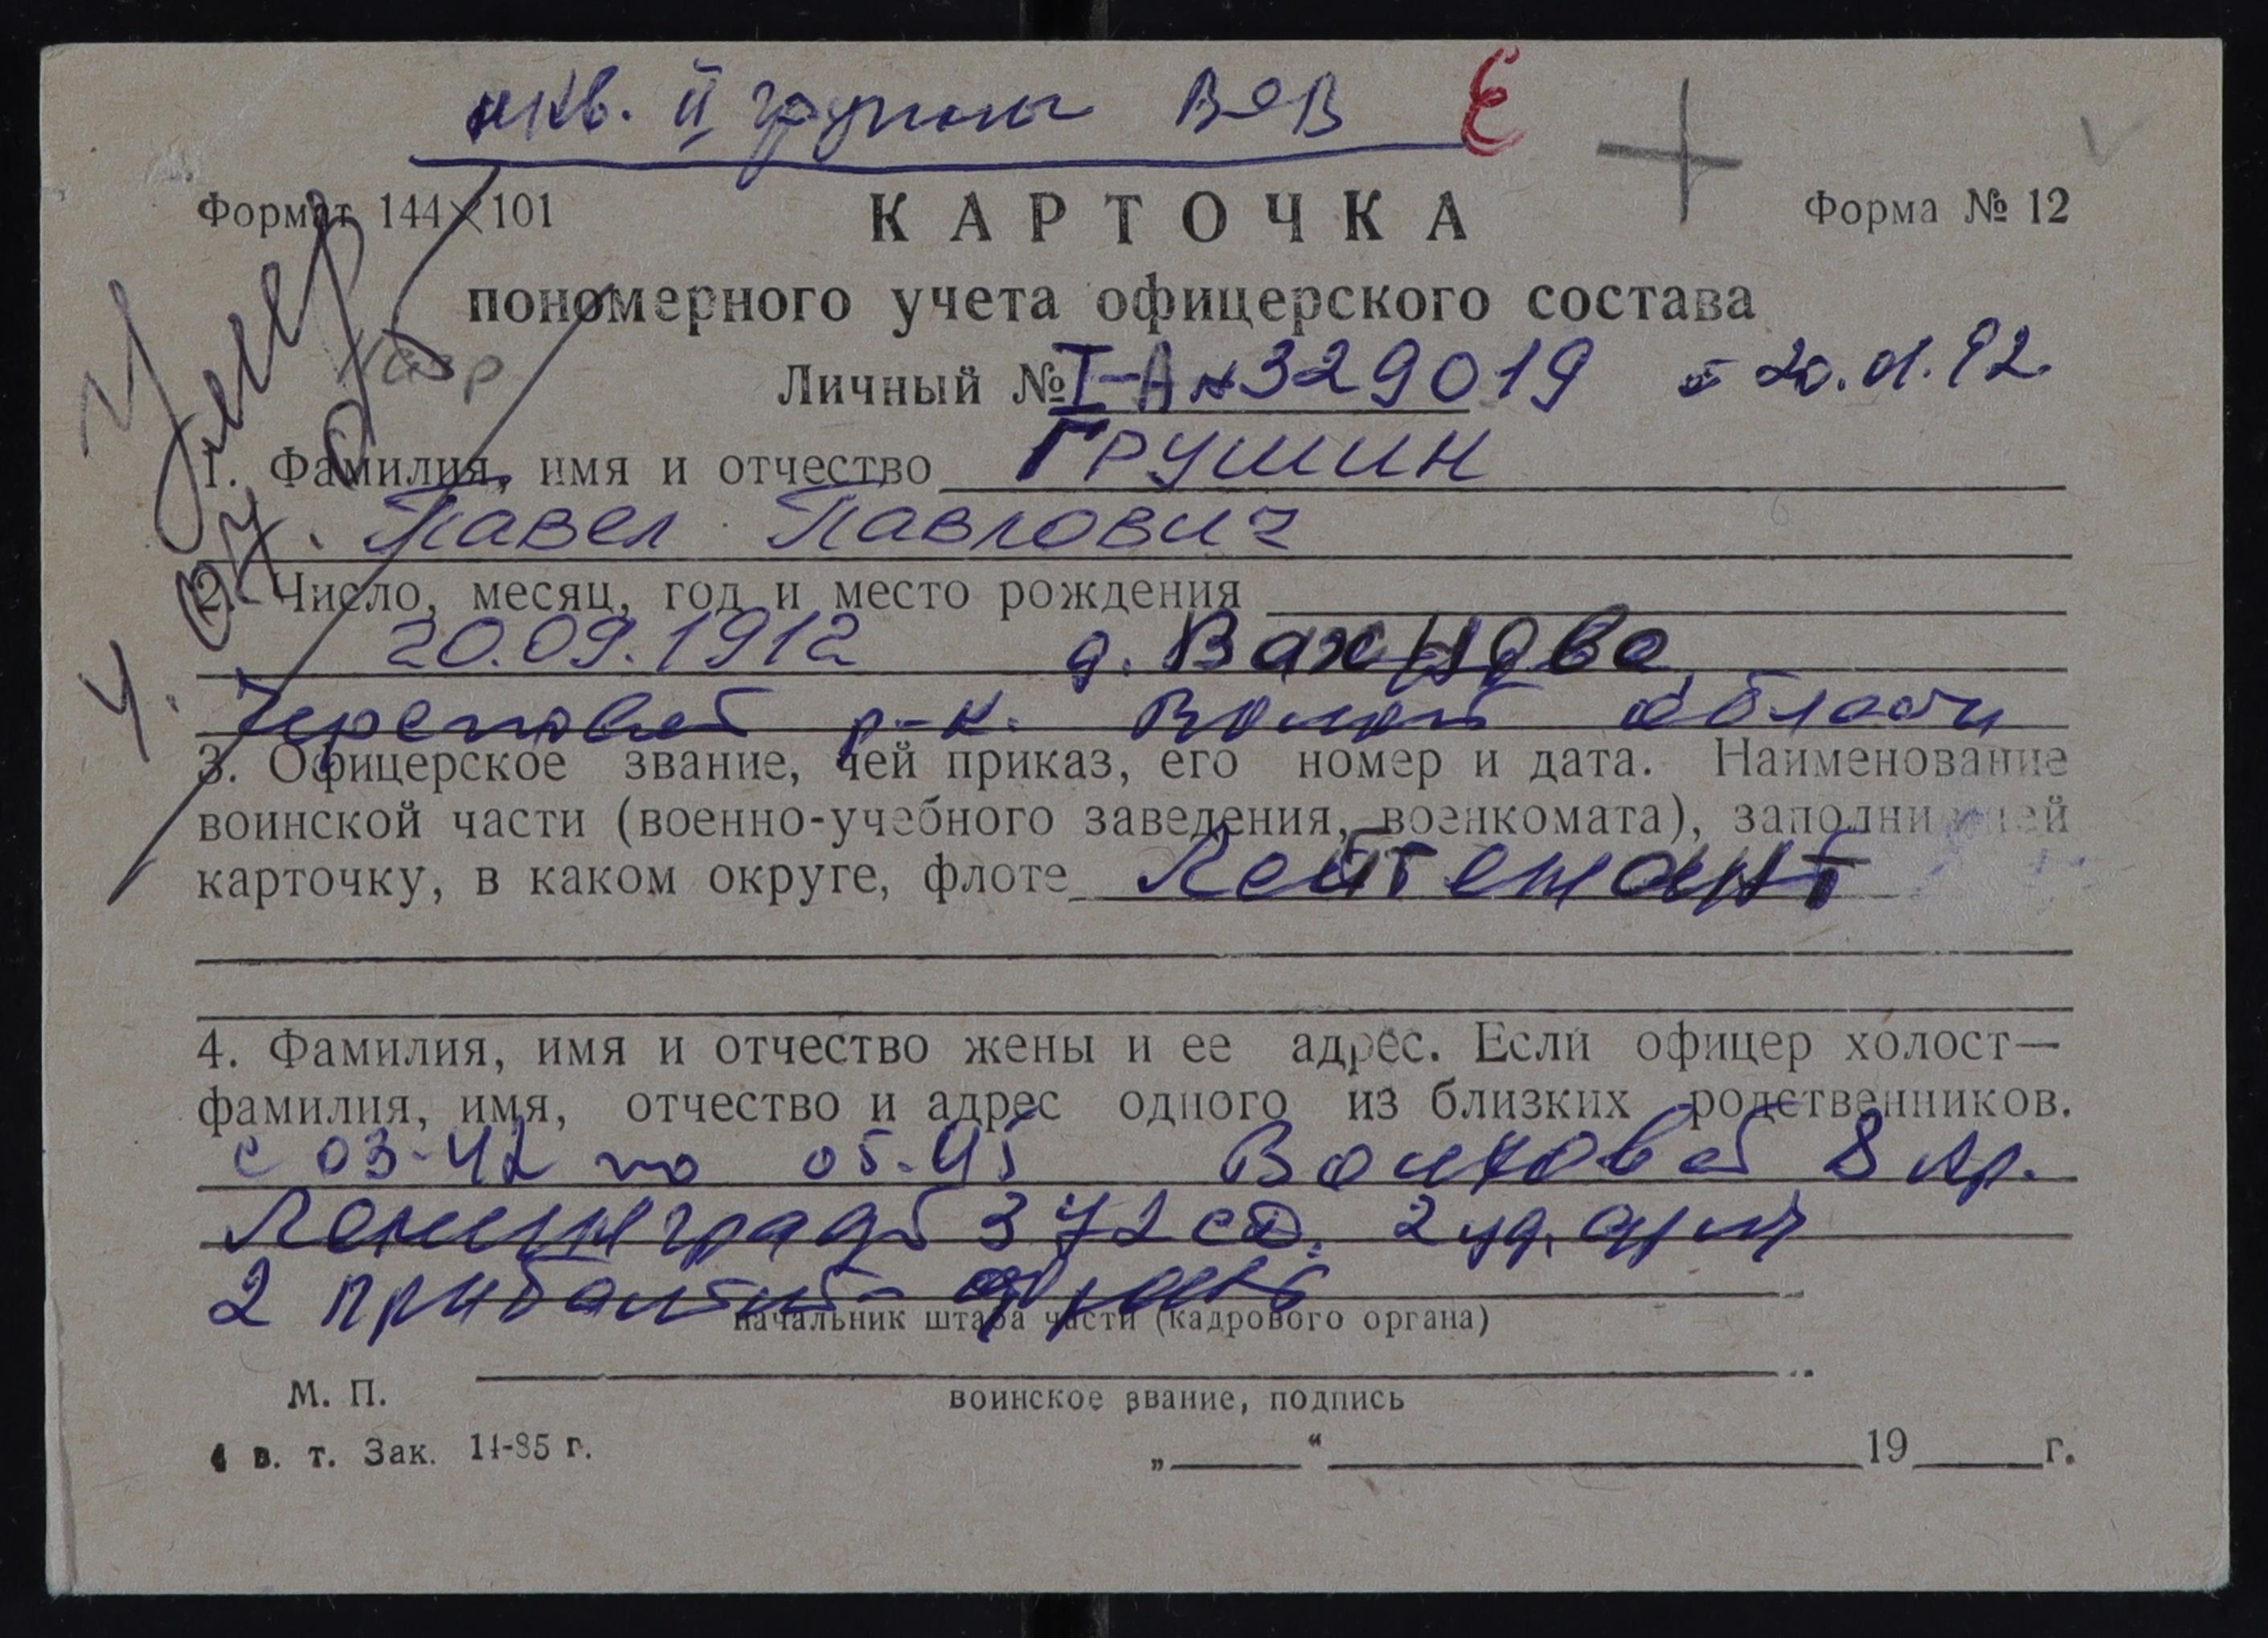 инв. II группы ВОВ Е
Формат 144×101
КАРТОЧКА
Форма № 12
пономерного учета офицерского состава
Личный № I-А № 329019 от 20.01.92.
Умер
1. Фамилия, имя и отчество ГРУШИН
Павел Павлович
2. Число, месяц, год и место рождения
20.09.1912 д. Вахново
Череповец р-н. Волог области
3. Офицерское звание, чей приказ, его номер и дата. Наименование
воинской части (военно-учебного заведения, военкомата), заполнившей
карточку, в каком округе, флоте Лейтенант
4. Фамилия, имя и отчество жены и ее адрес. Если офицер холост—
фамилия, имя, отчество и адрес одного из близких родственников.
с 03-42 по 05-45 Волховс 8 ар.
Ленинград 372 сд. 2 уд. арм
2 прибалтий фронт
начальник штаба части (кадрового органа)
М. П.
воинское звание, подпись
4 в. т. Зак. 14-85 г.
„ “ 19 г.